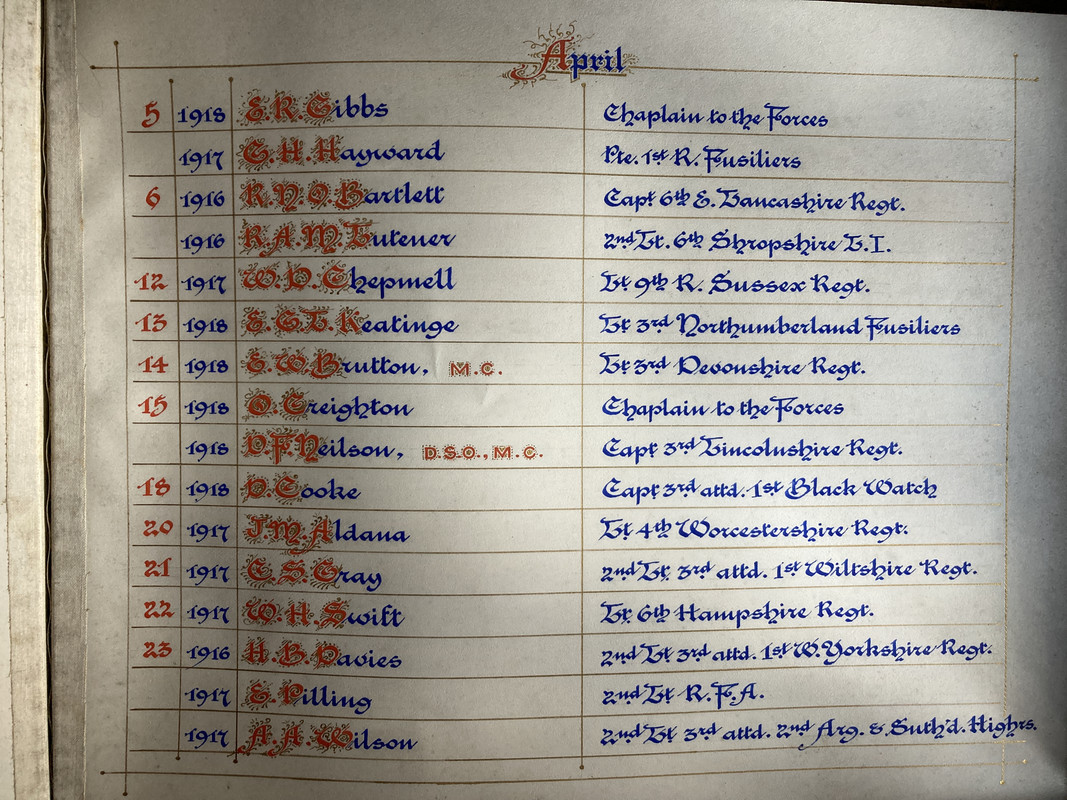 April
5 1918 E. R. Gibbs Chaplain to the Forces
1917 G. H. Hayward Pte. 1st R. Fusiliers
6 1916 R. N. O. Bartlett Capt 6th E. Lancashire Regt.
1916 R. A. M. Lutener 2nd Lt. 6th Shropshire L.I.
12 1917 W. D. Chepmell Lt 9th R. Sussex Regt.
13 1918 E. G. L. Keatinge Lt 3rd Northumberland Fusiliers
14 1918 E. W. Brutton, M.C. Lt 3rd Devonshire Regt.
15 1918 O. Creighton Chaplain to the Forces
1918 D. F. Neilson, D.S.O., M.C. Capt 3rd Lincolnshire Regt.
18 1918 D. Cooke Capt 3rd attd. 1st Black Watch
20 1917 J. M. Aldana Lt 4th Worcestershire Regt.
21 1917 C. S. Gray 2nd Lt 3rd attd. 1st Wiltshire Regt.
22 1917 W. H. Swift Lt 6th Hampshire Regt.
23 1916 H. B. Davies 2nd Lt 3rd attd. 1st W. Yorkshire Regt.
1917 E. Pilling 2nd Lt R.F.A.
1917 A. A. Wilson 2nd Lt 3rd attd. 2nd Arg. & Suth'd. Highrs.